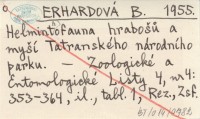 ERHARDOVÁ B. 1955.
Helmintofauna hrabošů a
myší Tatranského národního
parku. — Zoologické a
Entomologické Listy 4, nr4:
353-364, il., tabl. 1, Rez., Zsf.